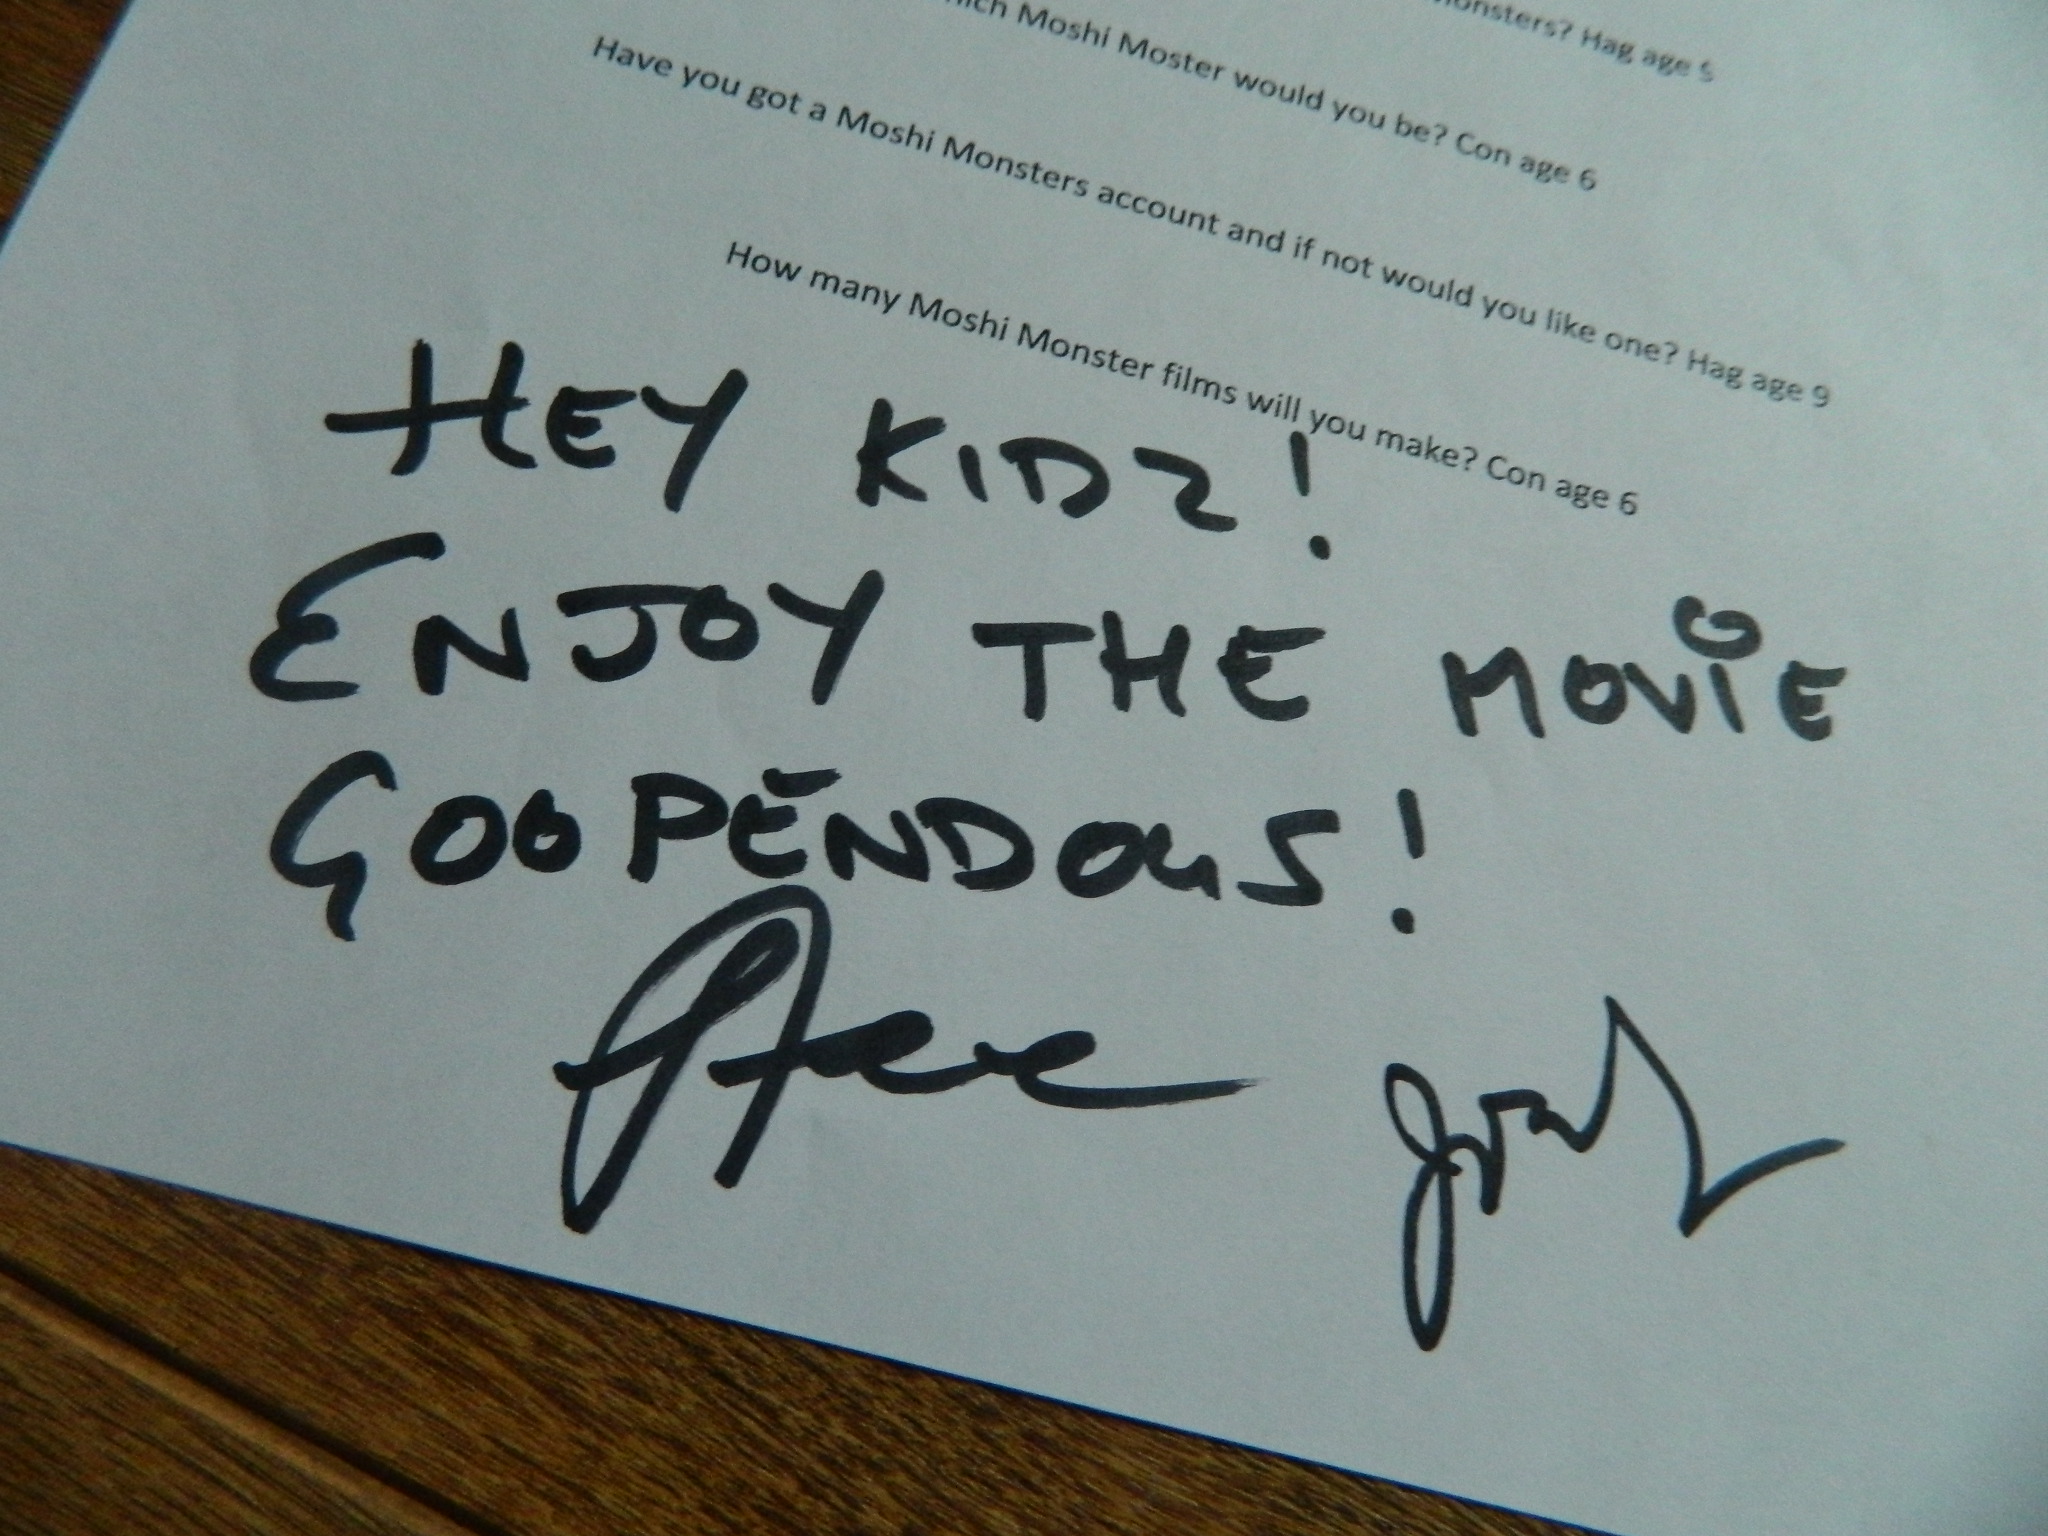 onsters? Hag age 5
ich Moshi Moster would you be? Con age 6
Have you got a Moshi Monsters account and if not would you like one? Hag age 9
How many Moshi Monster films will you make? Con age 6
HEY KIDZ!
ENJOY THE MOViE
GOOPENDOUS!